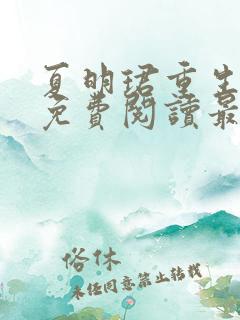 夏明珺重生
免費閱讀最
俗休
未任同意禁止转载